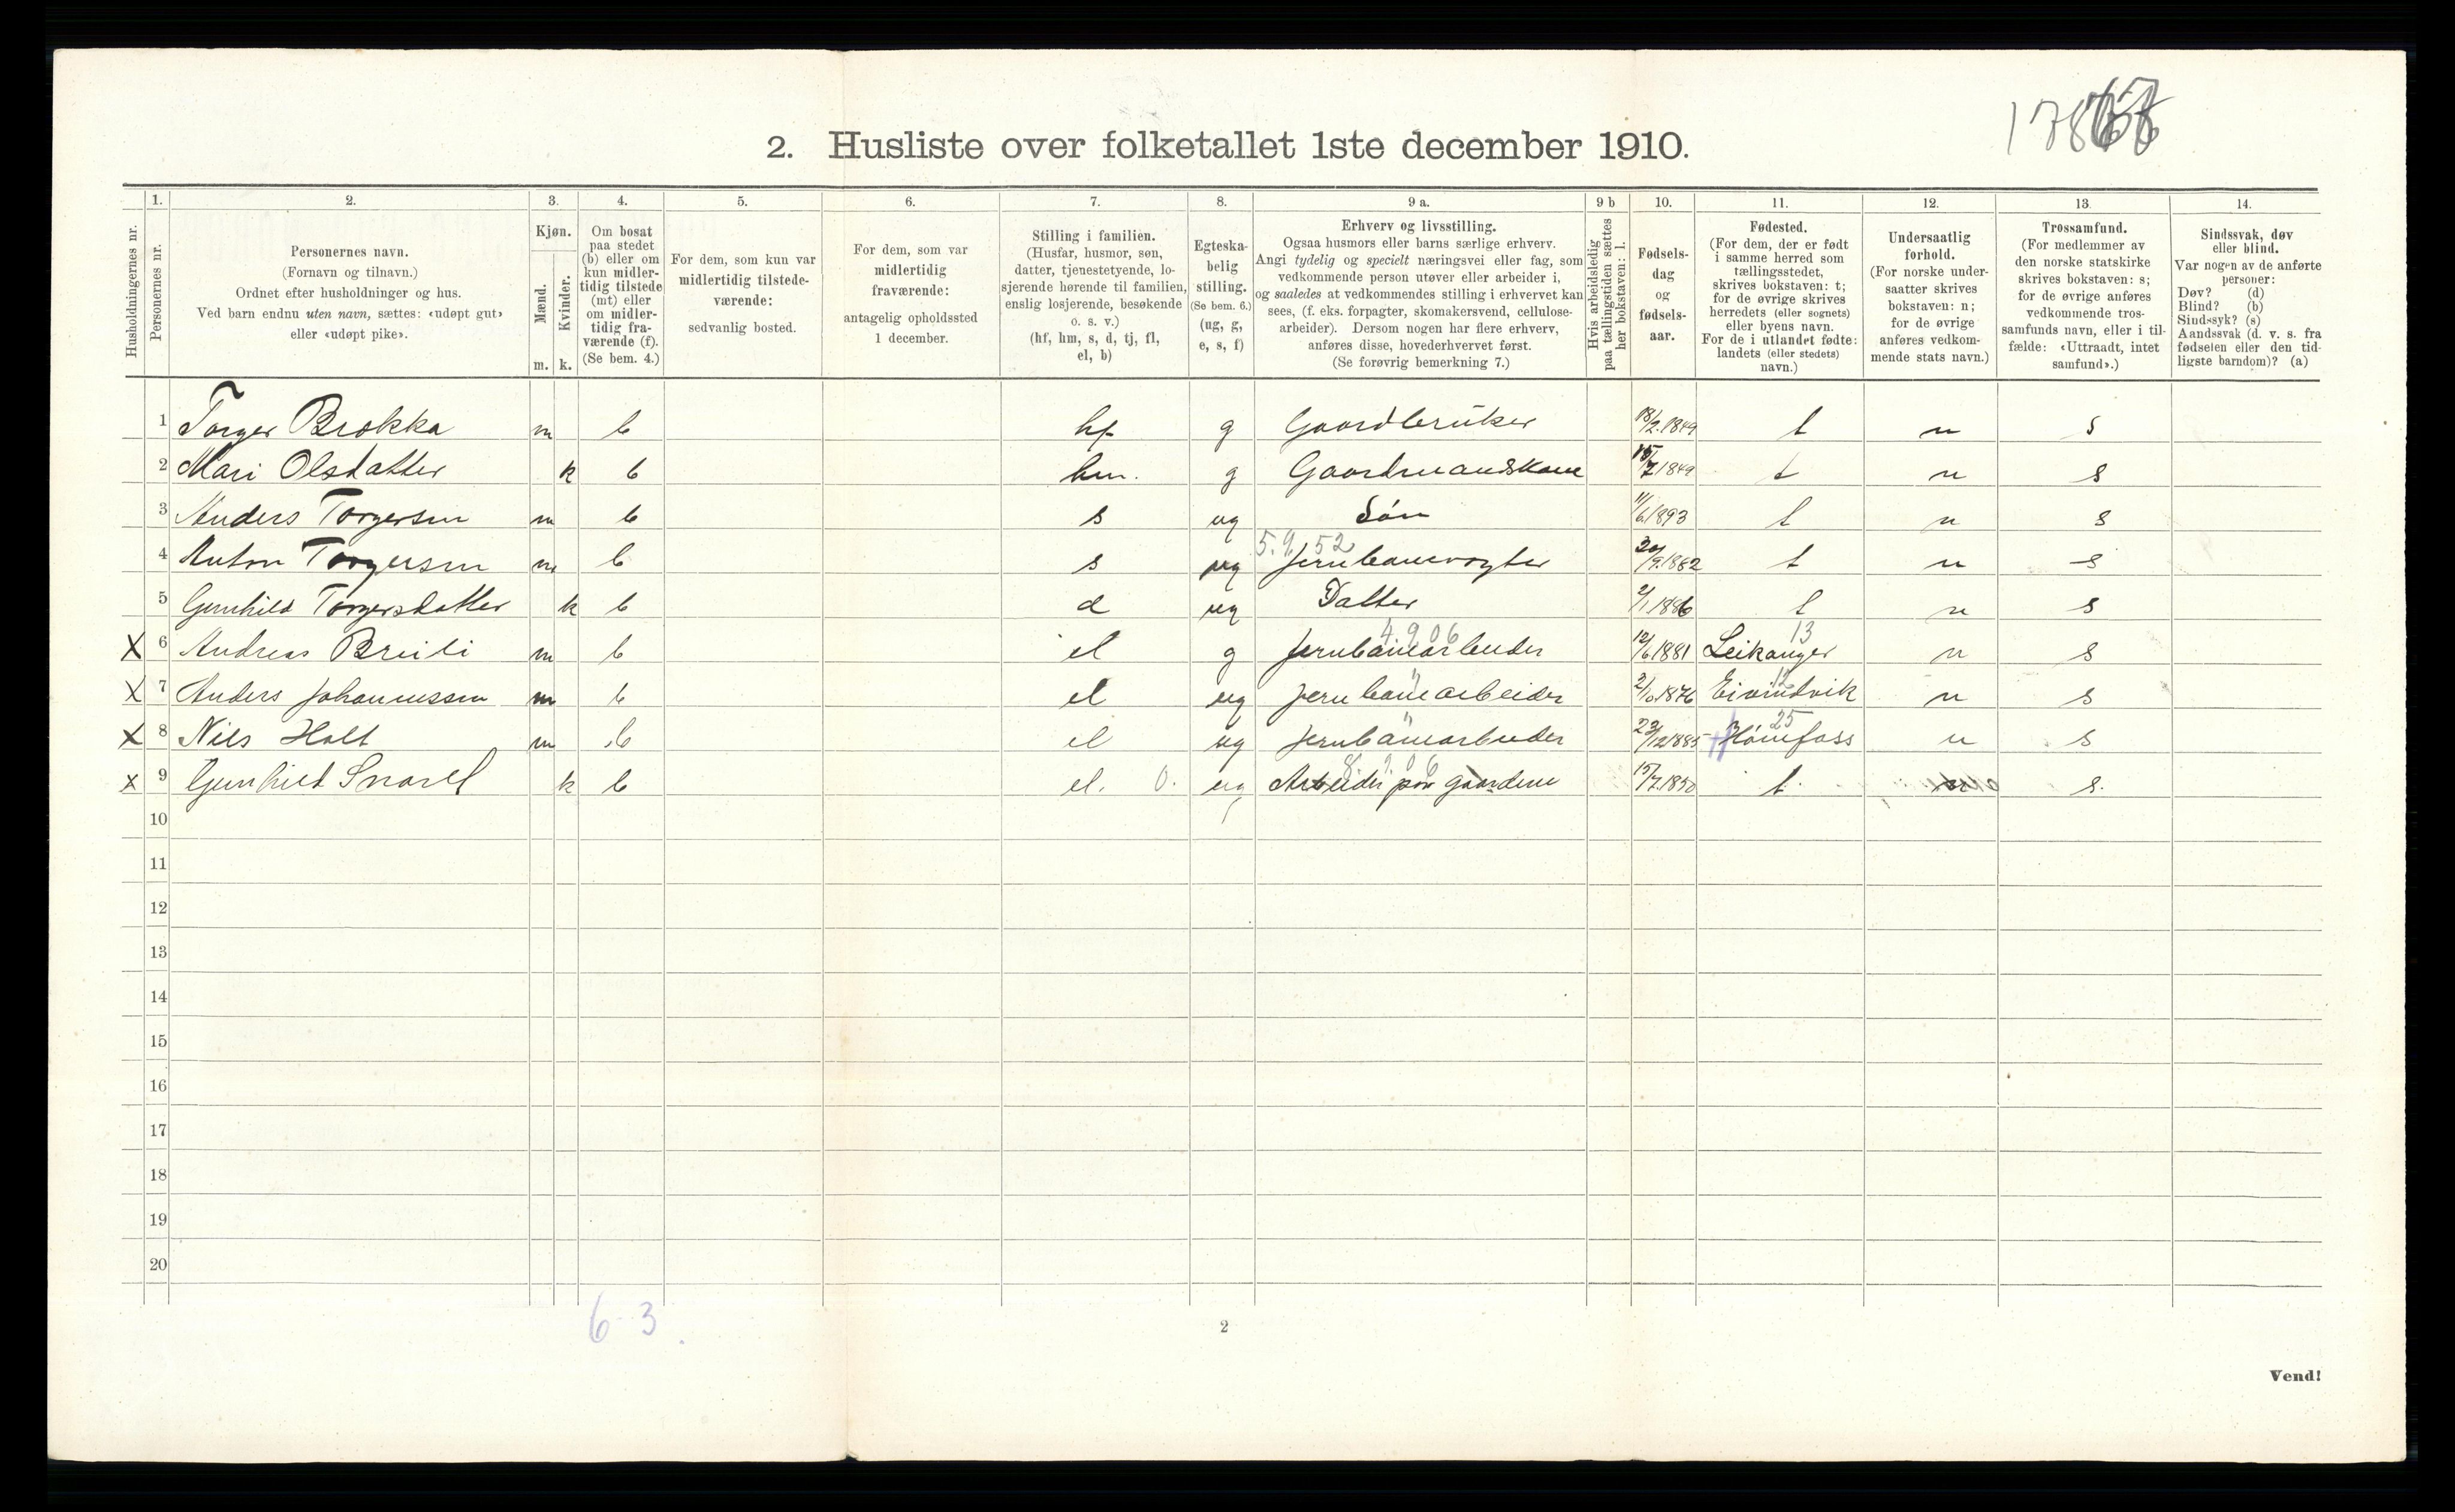 2. Husliste over folketallet 1ste december 1910.
Husholdningernes nr.
1. Personernes nr.
2. Personernes navn.
(Fornavn og tilnavn.)
Ordnet efter husholdninger og hus.
Ved barn endnu uten navn, sættes: «udøpt gut»
eller «udøpt pike».
3. Kjøn.
Mænd. m.
Kvinder. k.
4. Om bosat
paa stedet
(b) eller om
kun midler-
tidig tilstede
(mt) eller
om midler-
tidig fra-
værende (f).
(Se bem. 4.)
5. For dem, som kun var
midlertidig tilstede-
værende:
sedvanlig bosted.
6. For dem, som var
midlertidig
fraværende:
antagelig opholdssted
1 december.
7. Stilling i familien.
(Husfar, husmor, søn,
datter, tjenestetyende, lo-
sjerende hørende til familien,
enslig losjerende, besøkende
o. s. v.)
(hf, hm, s, d, tj, fl,
el, b)
8. Egteska-
belig
stilling.
(Se bem. 6.)
(ug, g,
e, s, f)
9 a. Erhverv og livsstilling.
Ogsaa husmors eller barns særlige erhverv.
Angi tydelig og specielt næringsvei eller fag, som
vedkommende person utøver eller arbeider i,
og saaledes at vedkommendes stilling i erhvervet kan
sees, (f. eks. forpagter, skomakersvend, cellulose-
arbeider). Dersom nogen har flere erhverv,
anføres disse, hovederhvervet først.
(Se forøvrig bemerkning 7.)
9 b Hvis arbeidsledig
paa tællingstiden sættes
her bokstaven: l.
10. Fødsels-
dag
og
fødsels-
aar.
11. Fødested.
(For dem, der er født
i samme herred som
tællingsstedet,
skrives bokstaven: t;
for de øvrige skrives
herredets (eller sognets)
eller byens navn.
For de i utlandet fødte:
landets (eller stedets)
navn.)
12. Undersaatlig
forhold.
(For norske under-
saatter skrives
bokstaven: n;
for de øvrige
anføres vedkom-
mende stats navn.)
13. Trossamfund.
(For medlemmer av
den norske statskirke
skrives bokstaven: s;
for de øvrige anføres
vedkommende tros-
samfunds navn, eller i til-
fælde: «Uttraadt, intet
samfund».)
14. Sindssvak, døv
eller blind.
Var nogen av de anførte
personer:
Døv? (d)
Blind? (b)
Sindssyk? (s)
Aandssvak (d. v. s. fra
fødselen eller den tid-
ligste barndom)? (a)
1 Torger Brokka m b hf g Gaardbruker 18/2.1849 t n s
2 Mari Olsdatter k b hm. g Gaardmandskone 15/7 1849 t n s
3 Anders Torgersen m b s ug Søn 11/6.1893 t n s
5.9. 52
4 Anton Torgersen m b s ug Jernbanevogter 20/9.1882 t n s
5 Gunhild Torgersdatter k b d ug Datter 2/1.1886 t n s
4.9 06 13
X 6 Andreas Breili m b el g Jernbanearbeider 12/6.1881 Leikanger n s
" 12
X 7 Anders Johannessen m b el ug Jernbanearbeider 2/10.1876 Eivindvik n s
" 25
X 8 Nils Holt m b el ug Jernbanearbeider 23/12 1885 Hønefoss n s
8 9 0 6
X 9 Gunhild b k el. 0. ug Arbeider paa gaarden 15/7.1850 t. s.
10
11
12
13
14
15
16
17
18
19
20
6-3
2
Vend!